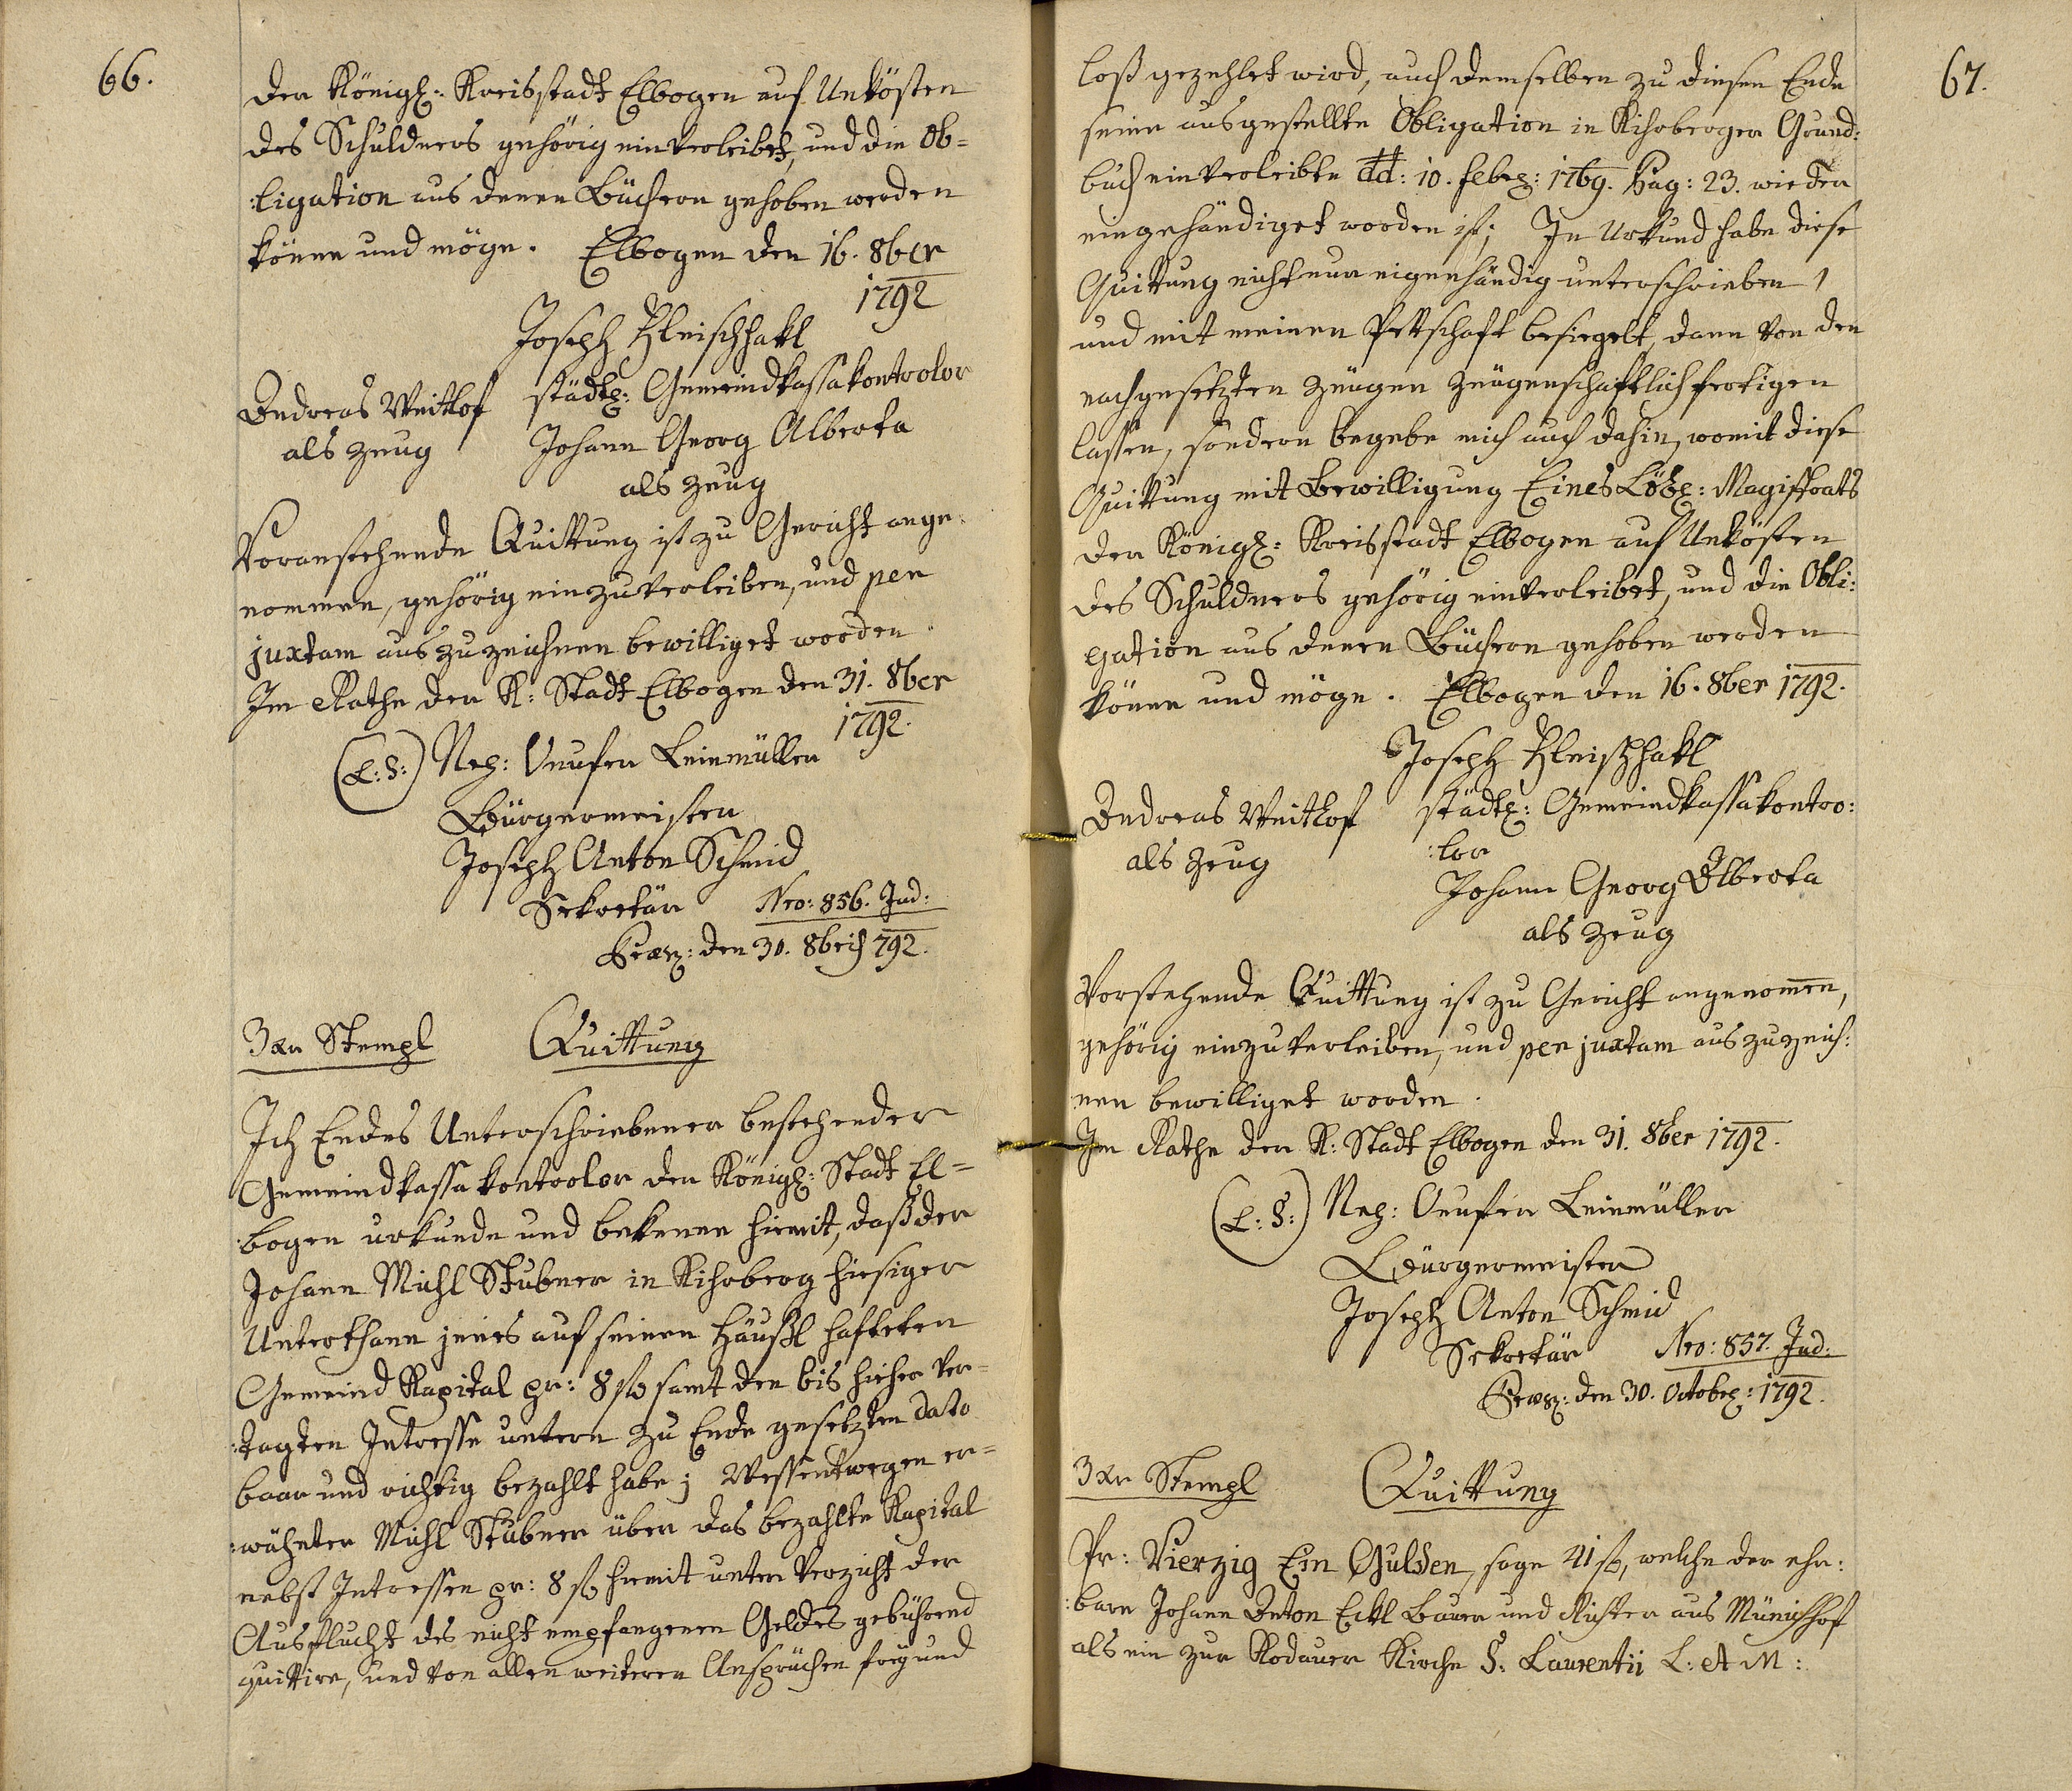 66.
der Königl: Kreisstadt Elbogen auf Unkösten
des Schuldners gehörig einverleibet, und die Ob=
:ligation aus denen Büchern gehoben werden
könne und möge. Elbogen den 16. 8ber
1792
Joseph Fleischhakl
Andreas Veithof städtl: Gemeindkassakontrolor
als Zeug Johann Georg Alberta
als Zeug
Voranstehende Quittung ist zu Gericht ange:
nommen, gehörig einzuverleiben, und per
juxtam auszuzeichnen bewilliget worden
Im Rathe der K: Stadt Elbogen den 31. 8ber
1792.
(L:S:) Leinmüller
Bürgermeister
Joseph Anton Schmid
Sekretär Nro: 856. Jud:
den 30. 8bris 792.
3 xr Stempl Quittung
Ich Endes Unterschriebener bestehender
Gemeindkassakontrolor der Königl: Stadt El=
:bogen urkunde und bekenne hiemit, daß der
Johann Michl Stubner in Kihrberg hiesiger
Unterthann jenes auf seinen Häußl hafteten
Gemeind Kapital pr: 8 f samt den bis hieher ver=
:tagten Intresse untern zu Ende gesetzten dato
baar und richtig bezahlt habe; Wessentwegen er=
:wähnter Michl Stubner über das bezahlte Kapital
nebst Intressen pr: 8 f hiemit unter Verzicht der
Ausflucht des nicht empfangenen Geldes gebührend
quittire, und von allen weiteren Ansprüchen frey und
67.
loß gezehlet wird, auch demselben zu diesen Ende
seine ausgestellte Obligation in Kihrberger Grund:
buch einverleibte dd: 10. Febr: 1769. Pag: 23. wieder
eingehändiget worden ist; In Urkund habe diese
Quittung nicht nur eigenhändig unterschrieben,
und mit meinen Pettschaft besiegelt, dann von den
nachgesetzten Zeugen Zeugenschaftlich fertigen
lassen, sondern begebe mich auch dahin, womit diese
Quittung mit Bewilligung Eines Löbl: Magistrats
der Königl: Kreisstadt Elbogen auf Unkösten
des Schuldners gehörig einverleibet, und die Obli:
gation aus denen Büchern gehoben werden
könne und möge. Elbogen den 16. 8ber 1792.
Joseph Fleischhakl
Andreas Veithof städtl: Gemeindkassakontro:
als Zeug :lor
Johann Georg Alberta
als Zeug
Vorstehende Quittung ist zu Gericht angenommen,
gehörig einzuverleiben, und per juxtam auszuzeich:
nen bewilliget worden.
Im Rathe der K: Stadt Elbogen den 31. 8ber 1792.
(L:S:) Leinmüller
Bürgermeister
Joseph Anton Schmid
Sekretär Nro: 857. Jud:
den 30. Octobr: 1792.
3 xr Stempl Quittung
Pr: Vierzig Ein Gulden, sage 41 f, welche der ehr:
:bare Johann Anton Eckl Bauer und Richter aus Münichhof
als ein zur Rodauer Kirche S: Laurentii L: et M: